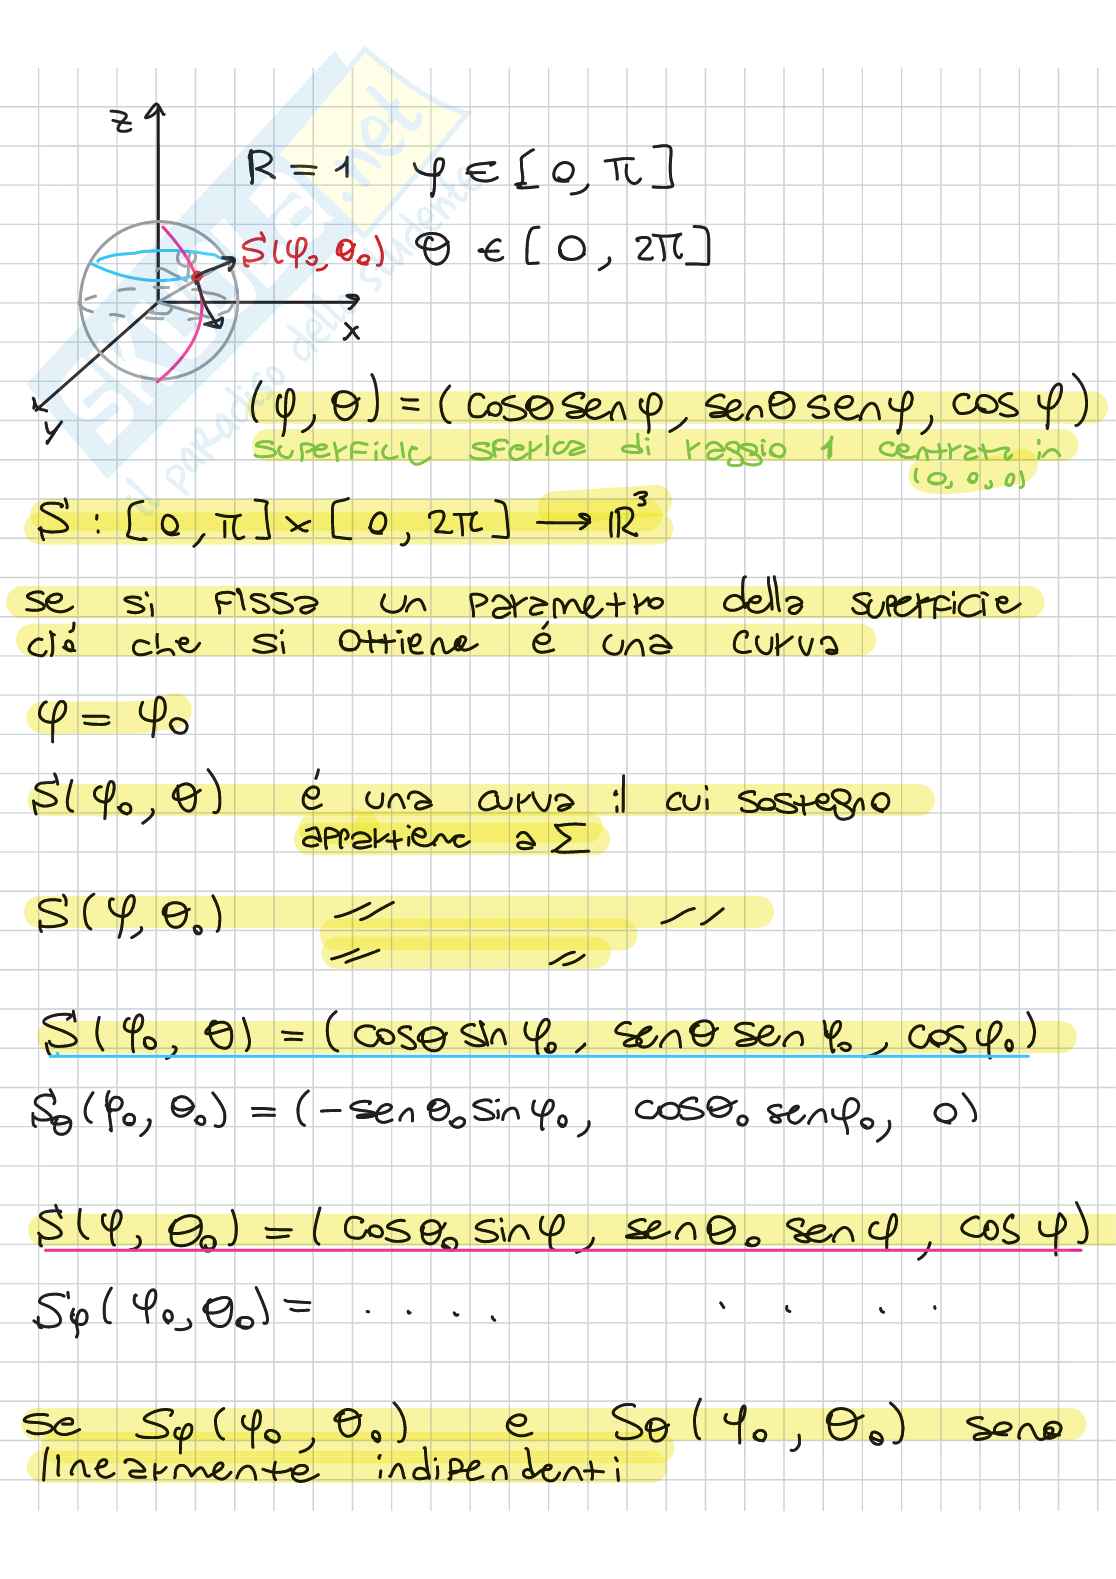 z
R = 1 φ ∈ [0, π]
S(φ₀, θ₀) θ ∈ [0, 2π]
x
y
(φ, θ) = (cosθ senφ, senθ senφ, cos φ)
superficie sferica di raggio 1 centrata in
(0, 0, 0)
S : [0, π] × [0, 2π] → ℝ³
se si fissa un parametro della superficie
ciò che si ottiene é una curva
φ = φ₀
S(φ₀, θ) é una curva il cui sostegno
appartiene a Σ
S(φ, θ₀) // //
// //
S(φ₀, θ) = (cosθ sin φ₀, senθ sen φ₀, cosφ₀)
S_θ(φ₀, θ₀) = (-senθ₀ sinφ₀, cosθ₀ senφ₀, 0)
S(φ, θ₀) = (cosθ₀ sinφ, senθ₀ senφ, cos φ)
S_φ(φ₀, θ₀) = . . . . . . . .
se S_φ(φ₀, θ₀) e S_θ(φ₀, θ₀) sono
linearmente indipendenti
SKUOLA.net
il paradiso dello studente